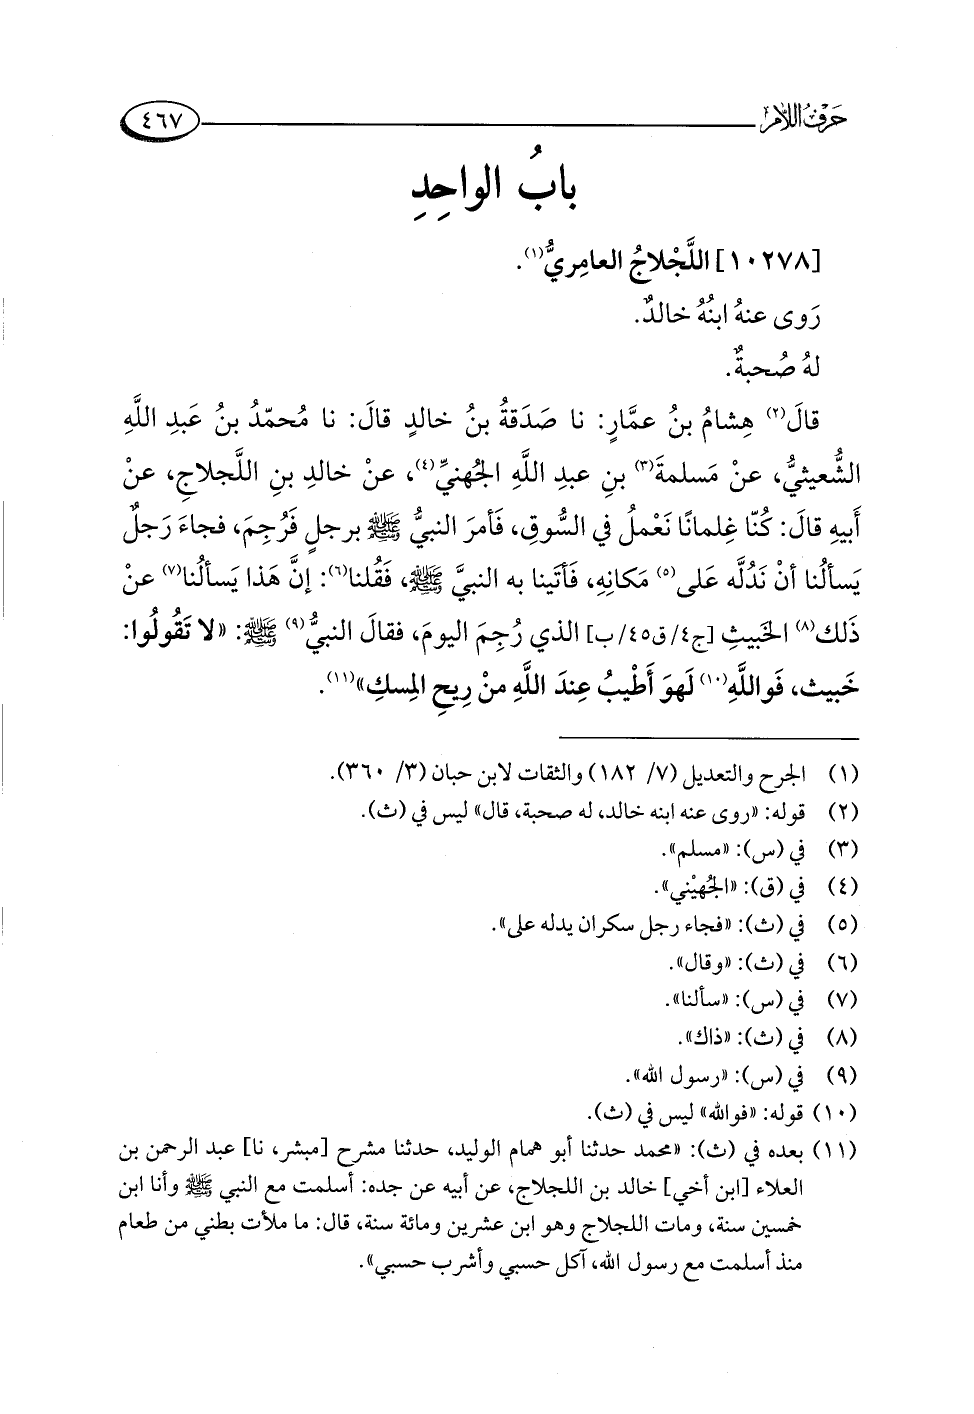 حرف اللام
٤٦٧
بابُ الواحِدِ
[١٠٢٧٨] اللَّجْلاجُ العامِريُّ(١).
رَوى عنهُ ابنُهُ خالدٌ.
لهُ صُحبةٌ.
قالَ(٢) هِشامُ بنُ عمَّارٍ: نا صَدَقةُ بنُ خالدٍ قالَ: نا مُحمّدُ بنُ عَبدِ اللَّهِ
الشُّعيثيُّ، عنْ مَسلمةَ(٣) بنِ عبدِ اللَّهِ الجُهنيِّ(٤)، عنْ خالدِ بنِ اللَّجلاجِ، عنْ
أبيهِ قالَ: كُنّا غِلمانًا نَعْملُ في السُّوقِ، فَأمرَ النبيُّ ﷺ برجلٍ فَرُجِمَ، فجاءَ رَجلٌ
يَسألُنا أنْ نَدُلَّه عَلى(٥) مَكانِهِ، فَأتَينا به النبيَّ ﷺ، فَقُلنا(٦): إنَّ هَذا يَسألُنا(٧) عنْ
ذَلك(٨) الخَبيثِ [ج٤/ ق٤٥/ ب] الذي رُجِمَ اليومَ، فقالَ النبيُّ(٩) ﷺ: «لا تَقُولُوا:
خَبيث، فَواللَّهِ(١٠) لَهوَ أَطْيبُ عِندَ اللَّهِ منْ رِيحِ المِسكِ»(١١).
(١) الجرح والتعديل (٧/ ١٨٢) والثقات لابن حبان (٣/ ٣٦٠).
(٢) قوله: «روى عنه ابنه خالد، له صحبة، قال» ليس في (ث).
(٣) في (س): «مسلم».
(٤) في (ق): «الجُهيْني».
(٥) في (ث): «فجاء رجل سكران يدله على».
(٦) في (ث): «وقال».
(٧) في (س): «سألنا».
(٨) في (ث): «ذاك».
(٩) في (س): «رسول الله».
(١٠) قوله: «فوالله» ليس في (ث).
(١١) بعده في (ث): «محمد حدثنا أبو همام الوليد، حدثنا مشرح [مبشر، نا] عبد الرحمن بن
العلاء [ابن أخي] خالد بن اللجلاج، عن أبيه عن جده: أسلمت مع النبي ﷺ وأنا ابن
خمسين سنة، ومات اللجلاج وهو ابن عشرين ومائة سنة، قال: ما ملأت بطني من طعام
منذ أسلمت مع رسول الله، آكل حسبي وأشرب حسبي».